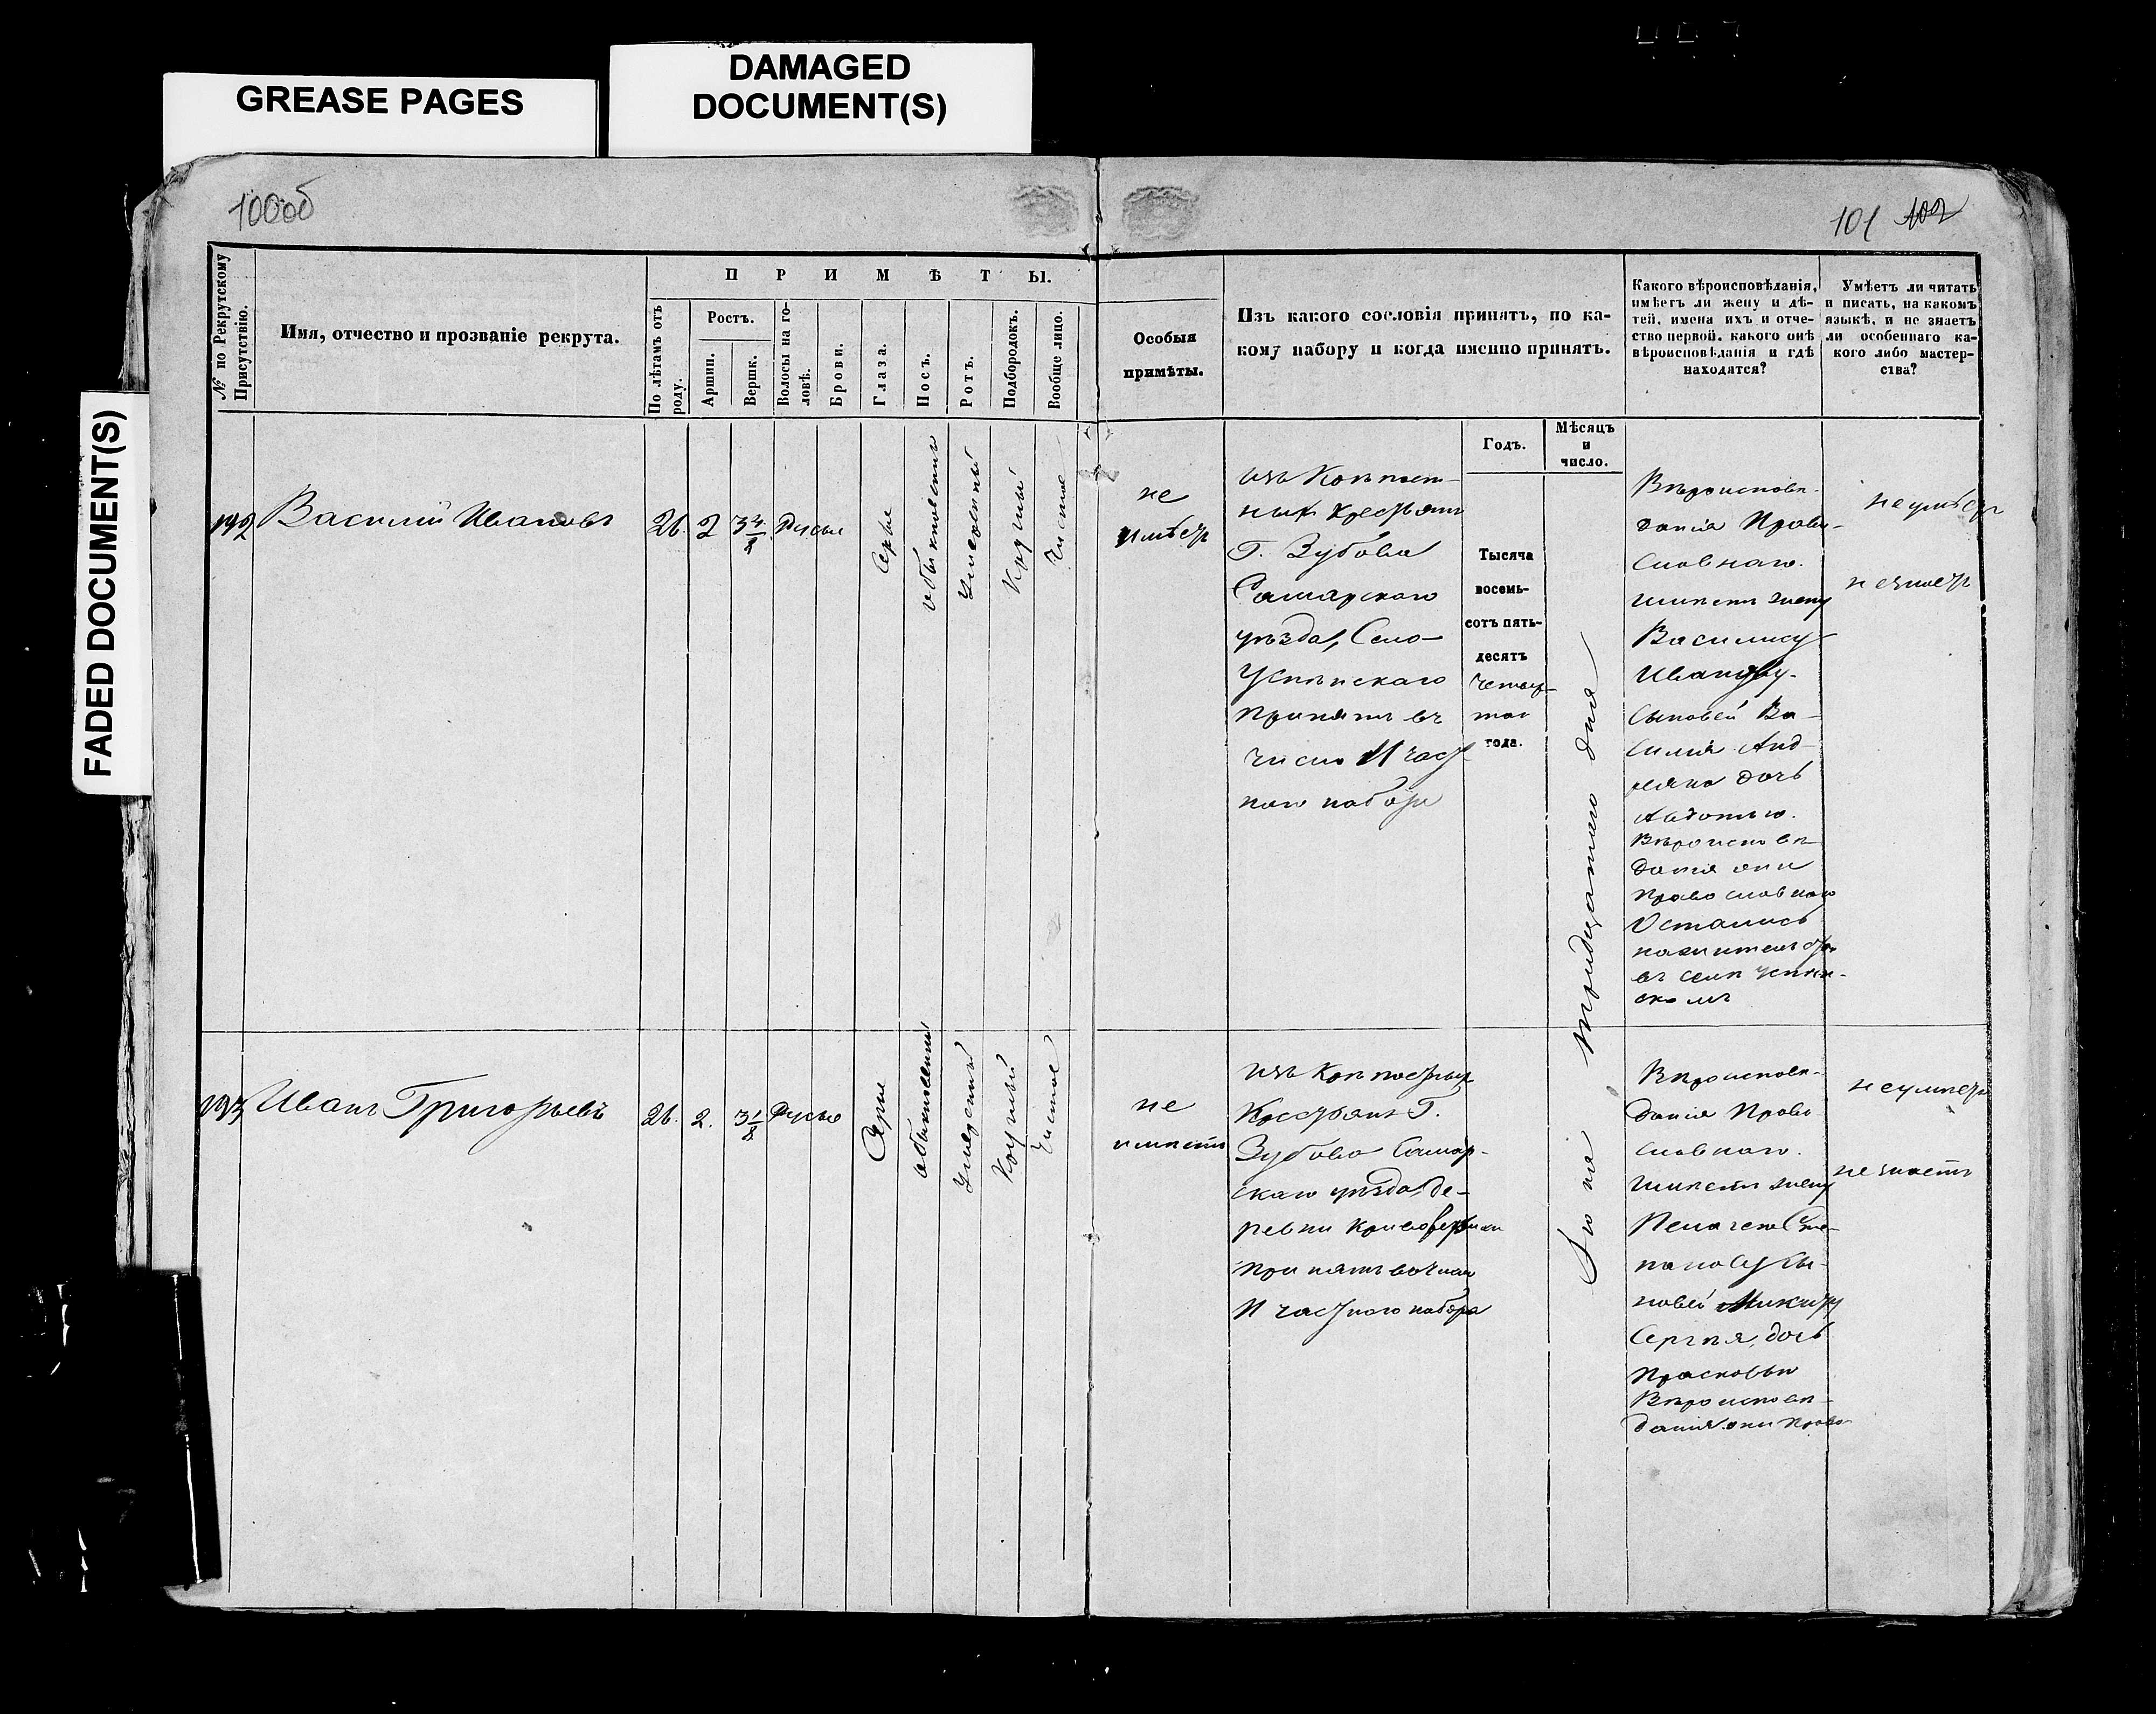 GREASE PAGES
DAMAGED
DOCUMENT(S)
FADED DOCUMENT(S)
100об
101 102
№ по Рекрутскому
Присутствію.
Имя, отчество и прозваніе рекрута.
ПРИМѢТЫ.
По лѣтамъ отъ
роду.
Ростъ.
Аршин.
Вершк.
Волосы на го-
ловѣ.
Брови.
Глаза.
Носъ.
Ротъ.
Подбородокъ.
Вообще лицо.
Особыя
примѣты.
Изъ какого сословія принятъ, по ка-
кому набору и когда именно принятъ.
Годъ.
Мѣсяцъ
и
число.
Какого вѣроисповѣданія,
имѣетъ ли жену и дѣ-
тей, имена ихъ и отче-
ство первой, какого онѣ
вѣроисповѣданія и гдѣ
находятся?
Умѣетъ ли читать
и писать, на какомъ
языкѣ, и не знаетъ
ли особеннаго ка-
кого либо мастер-
ства?
192
Василій Ивановъ
26.
2
3 4/8
Русые
Серые
обыкновенный
Умеренный
Круглый
Чистое
не
имѣетъ
изъ Помѣщ-
ныхъ Крестьянъ
Г. Зубова
Самарскаго
уѣзда, Село
Успѣнскаго
принятъ въ
число 11 част
наго набора
Тысяча
восемь-
сотъ пять-
десятъ
четвер-
таго
года.
Іюня тридцатаго дня
Вѣроисповѣ-
данія Право-
славнаго.
имѣетъ жену
Василису
Иванову.
сыновей Ва-
силія Анд-
реяна дочь
Авдотью.
Вѣроисповѣ-
данія они
православнаго
Остались
въ селѣ Успѣн-
скомъ
неумѣетъ
незнаетъ
193
Иванъ Григорьевъ
26.
2.
3 1/8
Русые
Серые
обыкновенный
Умеренный
Круглый
Чистое
не
имѣетъ
Крестьянъ Г.
Зубова Самар-
скаго уѣзда, де-
ревни
принятъ въ число
11 частнаго набора
Вѣроисповѣ-
данія Право-
славнаго.
имѣетъ жену
Пелагею Сте-
панову сы-
новей Никиту
Сергѣя, дочь
Прасковью
Вѣроисповѣ-
данія они Право-
неумѣетъ
незнаетъ